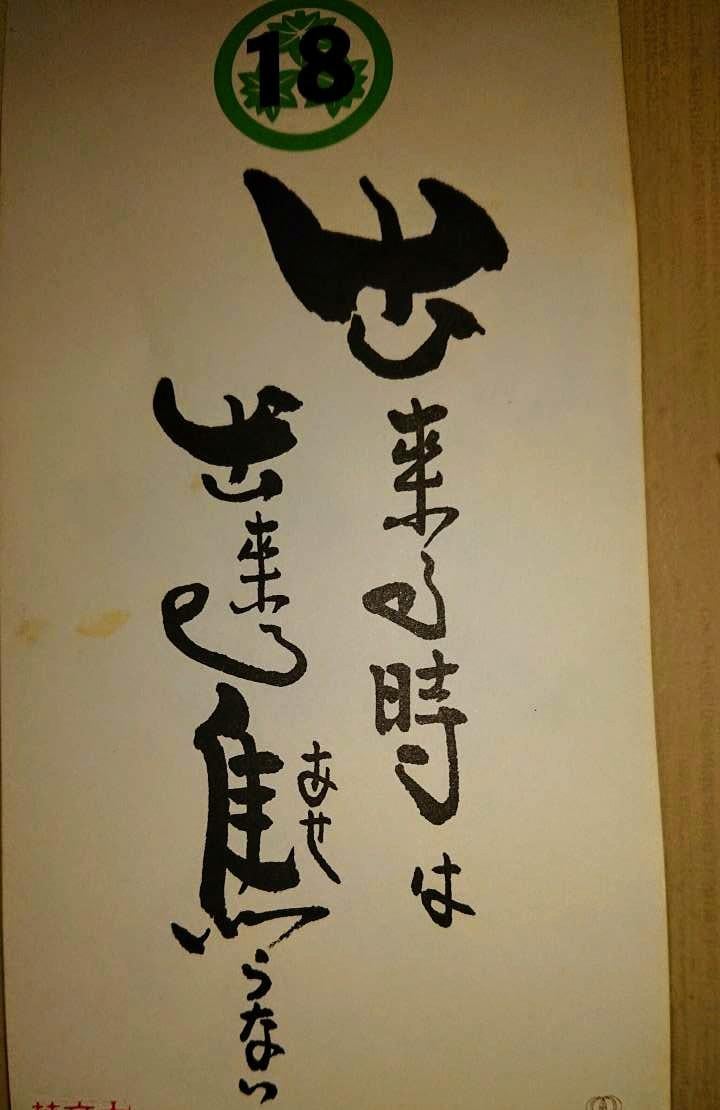 18
出来る時は
出来る焦らない
あせ